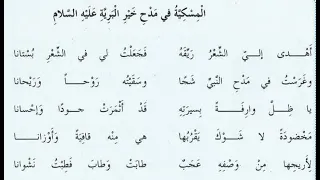 الْمِسْكِيَّةُ فِي مَدْحِ خَيْرِ الْبَرِيَّةِ عَلَيْهِ السَّلَامِ
أَهْدَى إِلَيَّ الشِّعْرُ رَيِّقَهُ فَجَعَلْتُ لِي فِي الشِّعْرِ بُسْتَانَا
وغَرَسْتُ فِي مَدْحِ النَّبِيِّ شَجًا وَسَقَيْتُه رَوْحاً وَرَيْحَانَا
يَا ظِلَّ وَارِفَةً بِسِيرَتِهِ قَدْ أَثْمَرَتْ جُودًا وَإِحْسَانَا
مَخْضُودَةً لَا شَوْكَ يَقْرُبُهَا هِيَ مِنْه قَافِيَةً وَأَوْزَانَا
لِأَرِيجِهَا مِنْ وَصْفِهِ عَجَبٌ طَابَتْ وَطَابَ فَطِبْتُ نَشْوَانَا